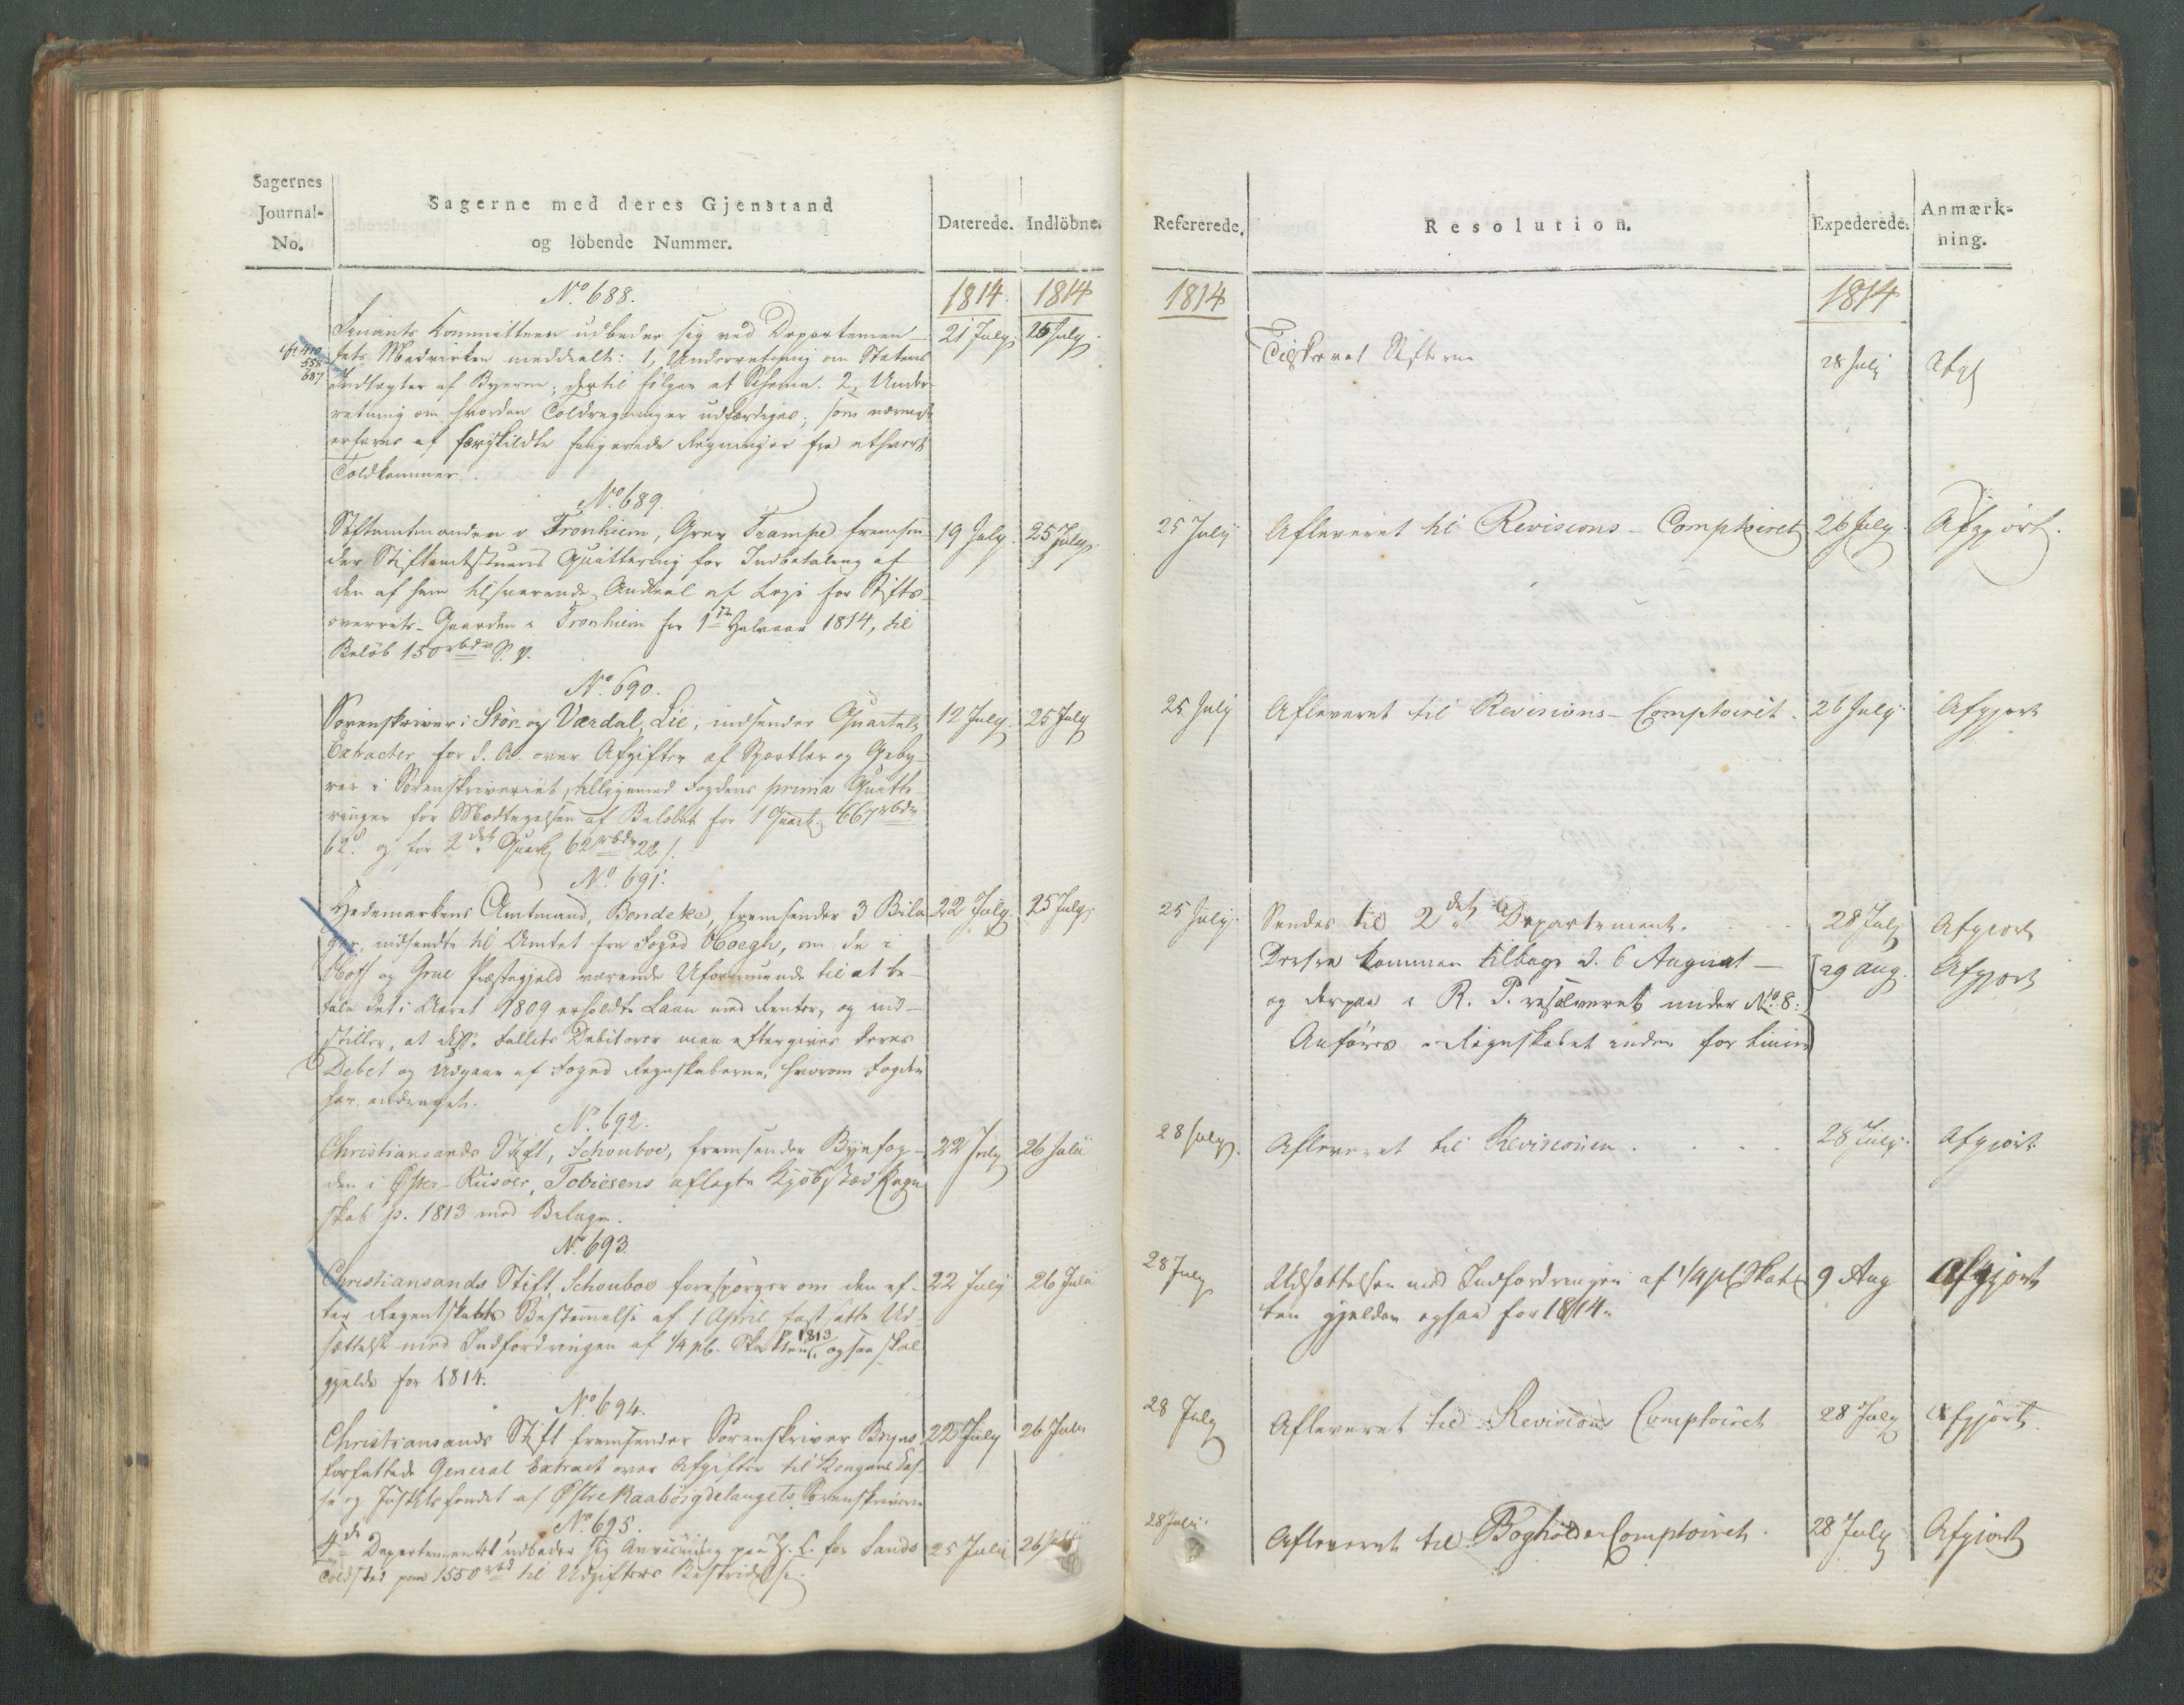 Sagernes
Journal-
No.
Sagerne med deres Gjenstand
og löbende Nummer.
Daterede.
Indlöbne.
Refererede.
Resolution.
Expederede.
Anmærk-
ning.
1814
1814
1814
1814
No. 688.
Finants Committeen udbeder sig ved Departemen-
tets Medvirken meddeelt: 1, Underretning om Statens
558
687
Indtægter af Byerne; dertil følger et Schema. 2, Under-
retning om hvordan Toldregninger udfærdiges; som nærmest
erfares af særskildte fingerede Regninger fra ethvert
Toldkammer.
21 July.
26 July.
Tilskrevet Stifterne
28 July
Afgj
No. 689.
Stiftamtmanden i Tronhiem, Grev Trampe fremsen-
der Stiftamtstuens Quittering for Indbetaling af
den af ham tilsvarende Andeel af Leje for Stifts-
overrets-Gaarden i Tronhiem for 1ste Halvaar 1814, til
Beløb 150 rbdr S. V.
19 July.
25 July.
25 July
Afleveret til Revisions-Comptoiret
26 July.
Afgjört.
No. 690.
Sorenskriver i Stör og Værdal, Lie, indsender Quartals
Extracter for d. A. over Afgifter af Sportler og Geby-
rer i Sorenskriveriet, tilligemed Fogdens prima Quitte-
ringer for Modtagelsen af Beløbet for 1 Quart. 667 rbdr
62 s. og for 2det Quart. 62 rbdr 22 s.
12 July.
25 July
25 July
Afleveret til Revisions-Comptoiret.
26 July
Afgjort
No. 691.
Hedemarkens Amtmand, Bendeke, fremsender 3 Bila-
ger, indsendte til Amtet fra Foged Hoegh, om de i
Hof og Grue Præstegjeld værende Uformuende til at be-
tale det i Aaret 1809 erholdte Laan med Renter, og ind-
stiller, at disse fallite Debitorer maa eftergives deres
Debet og Udgaae af Foged Regnskaberne, hvorom Fogden
har andraget.
22 July.
25 July.
25 July.
Sendes til 2det Departement.
28 July
Afgjort
Derfra kommen tilbage d. 6 August -
29 Aug.
Afgjort
og derpaa i R. P. resolveret under No. 8:
Anføres i Regnskabet inden for Linien
No. 692.
Christiansands Stift, Schouboe, fremsender Byefog-
den i Øster-Riisöer, Tobiesens aflagte Kjöbstæd Regn
skab p. 1813 med Bilage.
22 July
26 Julii
28 July.
Afleveret til Revisionen.
28 July.
Afgjort
No. 693.
Christiansands Stift, Schouboe forespørger om den ef-
ter Regentskabets Bestemmelse af 1 April fastsatte Ud-
sættelse med Indfordringen af 1/4 pC. Skatten p. 1813 ogsaa skal
gjelde for 1814.
22 July
26 Julii
28 July
Udsættelsen med Indfordringen af 1/4 pC Skat-
ten gjelder ogsaa for 1814.
9 Aug
Afgjort
No. 694.
Christiansands Stift fremsender Sorenskriver Bryns
forfattede General Extract over Afgifter til Kongens Cas-
se og Justitsfondet af Østre Raabøigdelaugets Sorenskriverie
22 July
26 Julii
28 July
Afleveret til Revisions Comptoiret
28 July
Afgjört.
No. 695.
4de Departementet udbeder sig Anviisning paa Z. C. for Lands
Toldsted paa 1550 rbd til Udgifters Bestridelse.
25 Julii
26 Julii
28 Julii.
Afleveret til Bogholder Comptoiret.
28 July
Afgjort